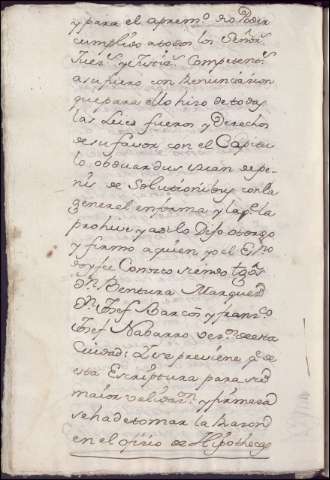 y para el apremº dio Poder
cumplido a todos los Señrs
Juezs y Justizs Competenᵗˢ
a su fuero con Renunciacion
que para ello hizo de todas
las Leies fueros y Derechos
de su favor con el Capitu
lo obduardus suan de pe
nis de Solutionibus con la
general en forma y la qᵉ la
prohive y asi lo Dijo otorgo
y firmo a quien yo el Essno
doy fee Conozco siendo tgos
Dn Bentura Marques
Dn Josef Barcos y franco
Josef Nabarro vezs de esta
Ciudad: Y se previene qe de
esta Escriptura para su
maior validazn y firmeza
se ha de tomar la Razond
en el ofizio de Hipothecas